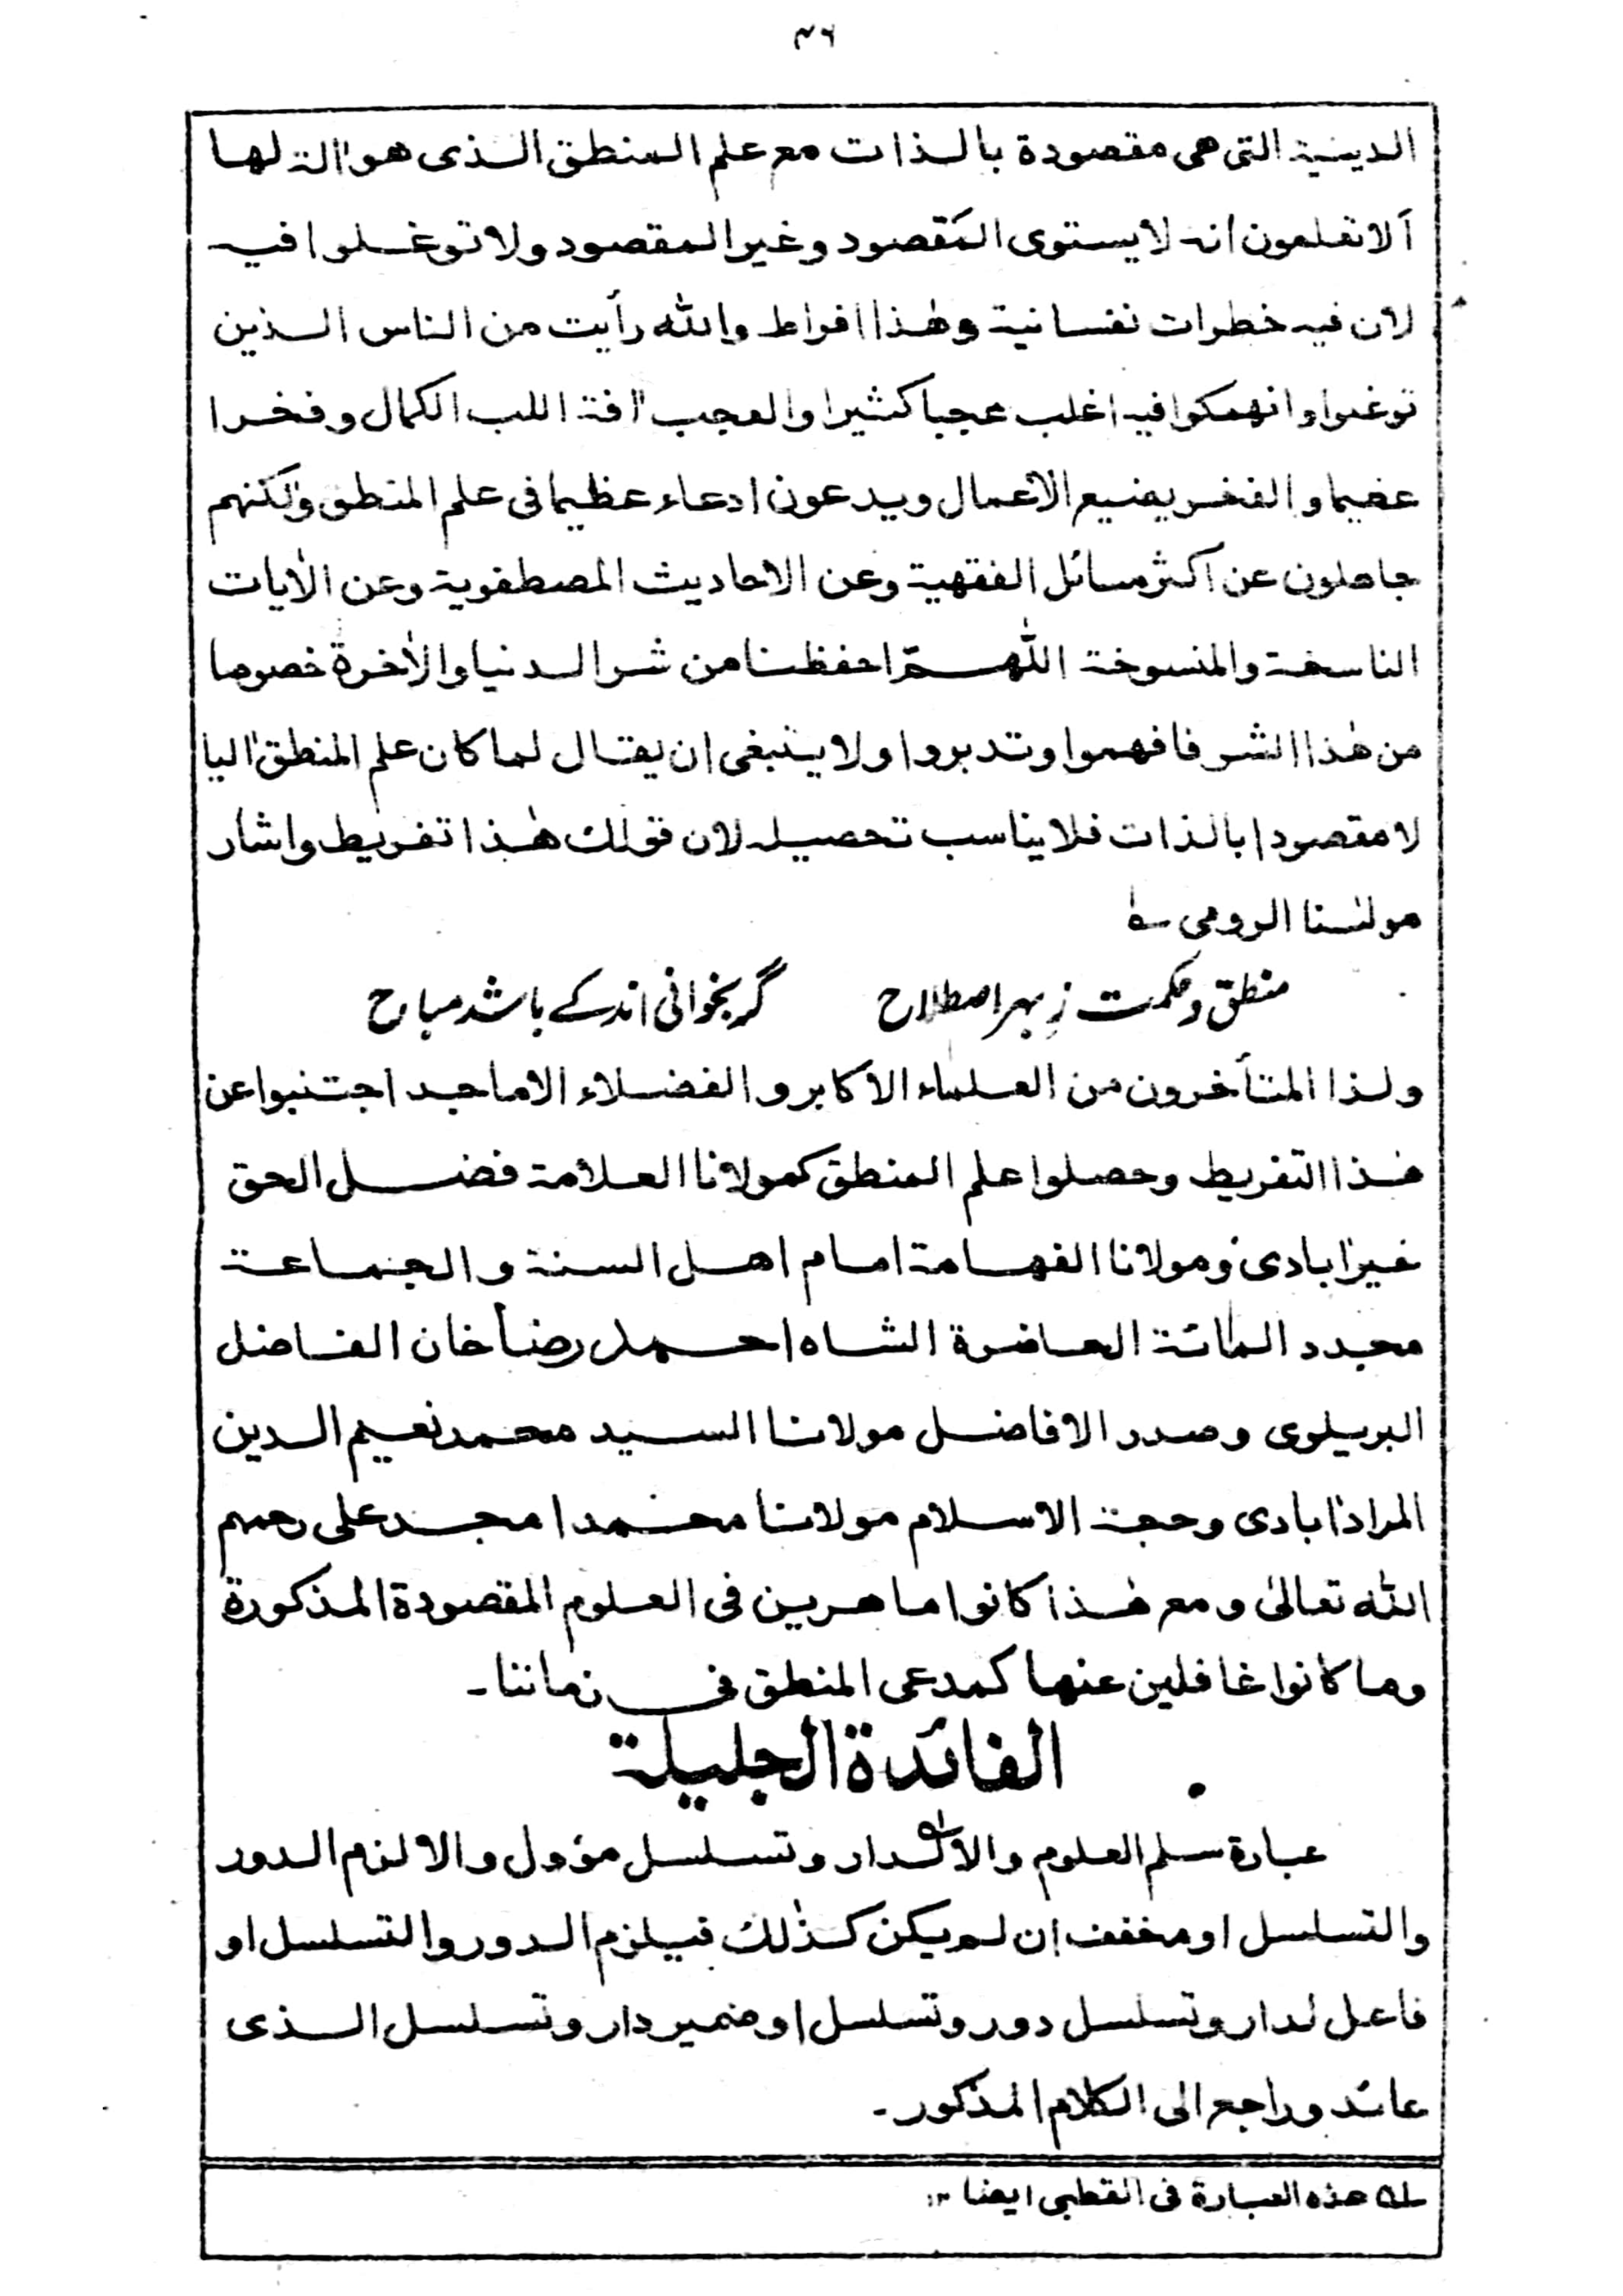 ٣٦
الدينية التى هى مقصودة بالذات مع علم المنطق الذى هو اٰلة لها
اَلا تعلمون انه لا يستوى المقصود وغير المقصود ولا توغلوا فيه
لان فيه خطرات نفسانية وهٰذا افراط والله رأيت من الناس الذين
توغلوا وانهمكوا فيه اغلب عجبا كثيرا والعجب اٰفة اللب الكمال وفخرا
عضيما والفخر يضيع الاعمال ويدعون ادعاء عظيما فى علم المنطق ولٰكنهم
جاهلون عن اكثر مسائل الفقهية وعن الاحاديث المصطفوية وعن الاٰيات
الناسخة والمنسوخة اللّٰهمّ احفظنا من شر الدنيا والاٰخرة خصوصا
من هٰذا الشر فافهموا وتدبروا ولا ينبغى ان يقال لما كان علم المنطق اٰليا
لا مقصودا بالذات فلا يناسب تحصيله لان قولك هٰذا تفريط واشار
مولٰنا الرومى ؎
منطق و حکمت ز بہر اصطلاح گر بخوانی اندکے باشد مباح
ولذا المتأخرون من العلماء الاكابر والفضلاء الاماجد اجتنبوا عن
هٰذا التفريط وحصلوا علم المنطق كمولانا العلامة فضل الحق
خيراٰبادى ومولانا الفهامة امام اهل السنة والجماعة
مجدد المائة الحاضرة الشاه احمد رضا خان الفاضل
البريلوى وصدر الافاضل مولانا السيد محمد نعيم الدين
المراداٰبادى وحجة الاسلام مولانا محمد امجد على رحمهم
الله تعالىٰ ومع هٰذا كانوا ماهرين فى العلوم المقصودة المذكورة
وما كانوا غافلين عنها كمدعى المنطق فى زماننا۔
الفائدة الجليلة
عبارة سلم العلوم والا لدار وتسلسل مؤول والا لزم الدور
والتسلسل او مخفف إن لم يكن كذٰلك فيلزم الدور والتسلسل او
فاعل لدار وتسلسل دور وتسلسل او ضمير دار وتسلسل الذى
عائد وراجع الى الكلام المذكور۔
لہ هذه العبارة فى القطبى ايضا ١٢